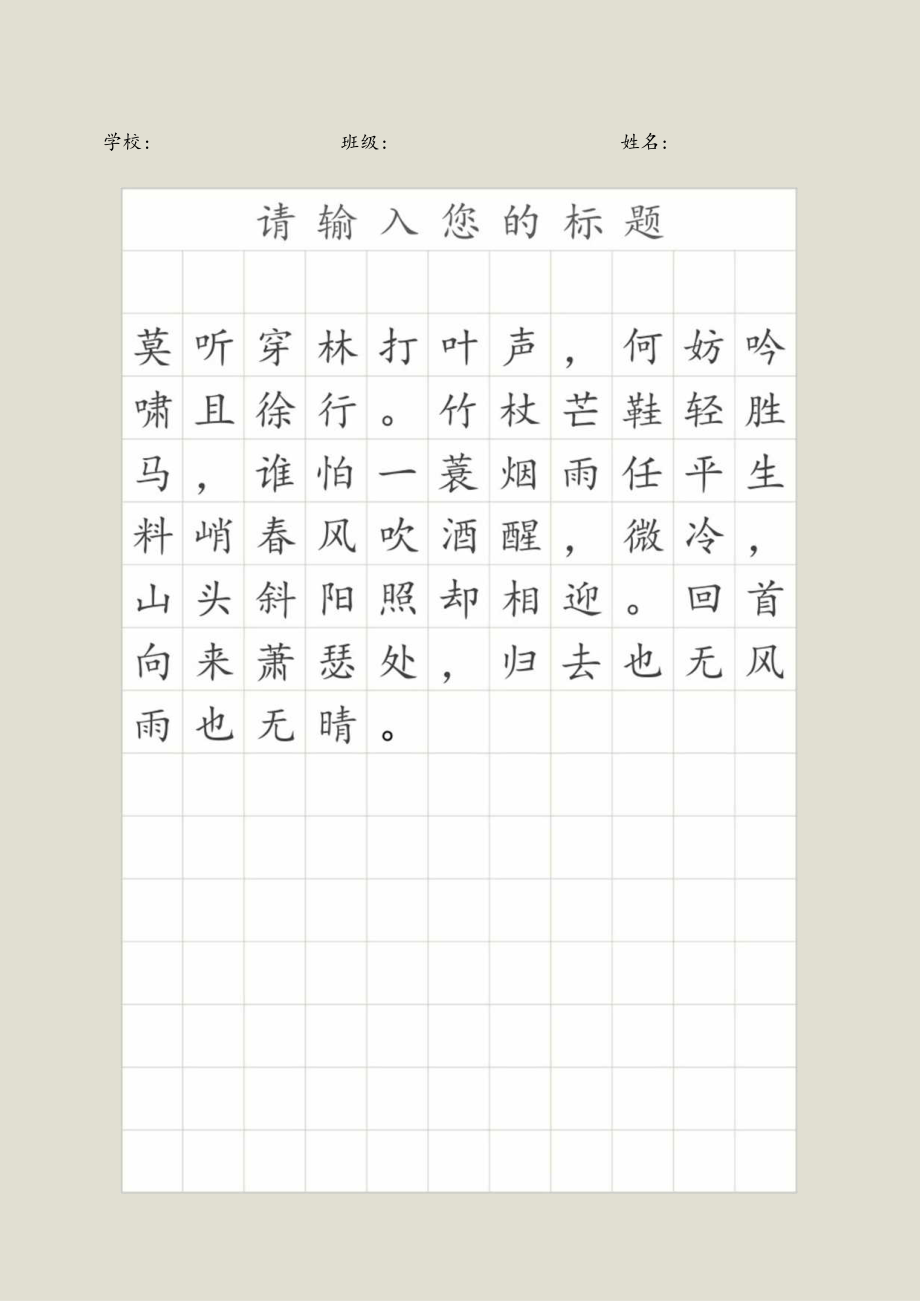 学校： 班级： 姓名：
请输入您的标题
莫听穿林打叶声，何妨吟
啸且徐行。竹杖芒鞋轻胜
马，谁怕一蓑烟雨任平生
料峭春风吹酒醒，微冷，
山头斜阳照却相迎。回首
向来萧瑟处，归去也无风
雨也无晴。